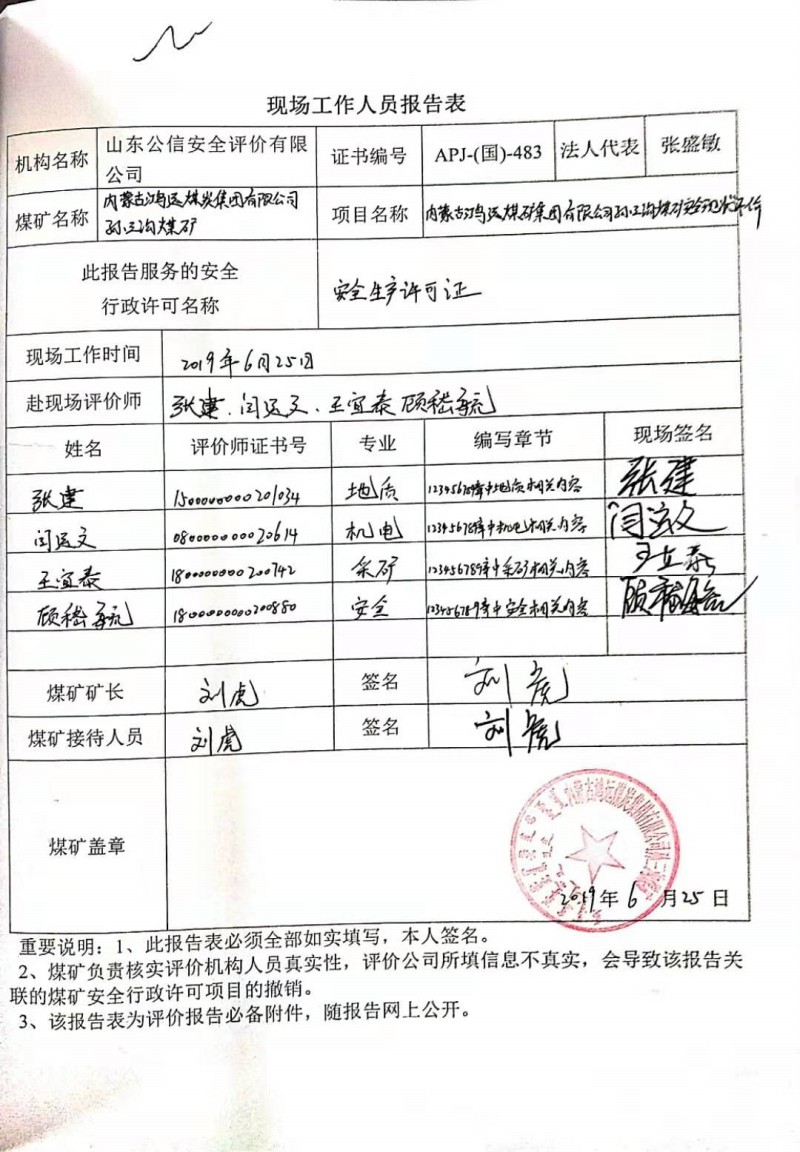 现场工作人员报告表
机构名称 山东公信安全评价有限公司 证书编号 APJ-(国)-483 法人代表 张盛敏
煤矿名称 内蒙古鸿远煤炭集团有限公司孙三沟煤矿 项目名称 内蒙古鸿远煤矿集团有限公司孙三沟煤矿安全现状评价
此报告服务的安全
行政许可名称 安全生产许可证
现场工作时间 2019年6月25日
赴现场评价师 张建、闫运文、王宜泰 顾嵇毓
姓名 评价师证书号 专业 编写章节 现场签名
张建 1500000000201034 地质 123456789章中地质相关内容 张建
闫运文 0800000000020614 机电 123456789章中机电相关内容 闫运文
王宜泰 1800000000200742 采矿 123456789章中采矿相关内容 王宜泰
1800000000200880 安全 123456789章中安全相关内容
煤矿矿长 刘虎 签名 刘虎
煤矿接待人员 刘虎 签名 刘虎
煤矿盖章
2019年6月25日
重要说明：1、此报告表必须全部如实填写，本人签名。
2、煤矿负责核实评价机构人员真实性，评价公司所填信息不真实，会导致该报告关
联的煤矿安全行政许可项目的撤销。
3、该报告表为评价报告必备附件，随报告网上公开。